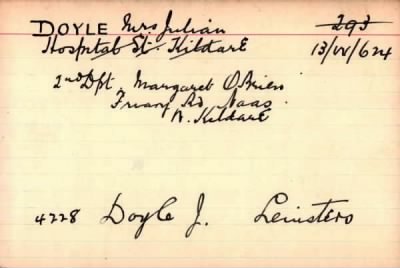 DOYLE Mrs Julian 293
Hospital St. Kildare 13/W/624
2nd Dpt. Margaret O'Brien
Friary Rd Naas
N. Kildare
4228 Doyle J. Leinsters